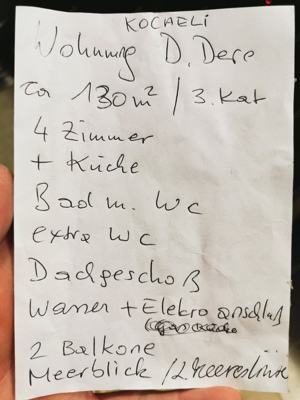 KOCAELİ
Wohnung D. Dere
ca 130 m² / 3. Kat
4 Zimmer
+ Küche
Bad m. WC
extra WC
Dachgeschoß
Wasser + Elektro anschluß
2 Balkone
Meerblick / 2. Meereslinie